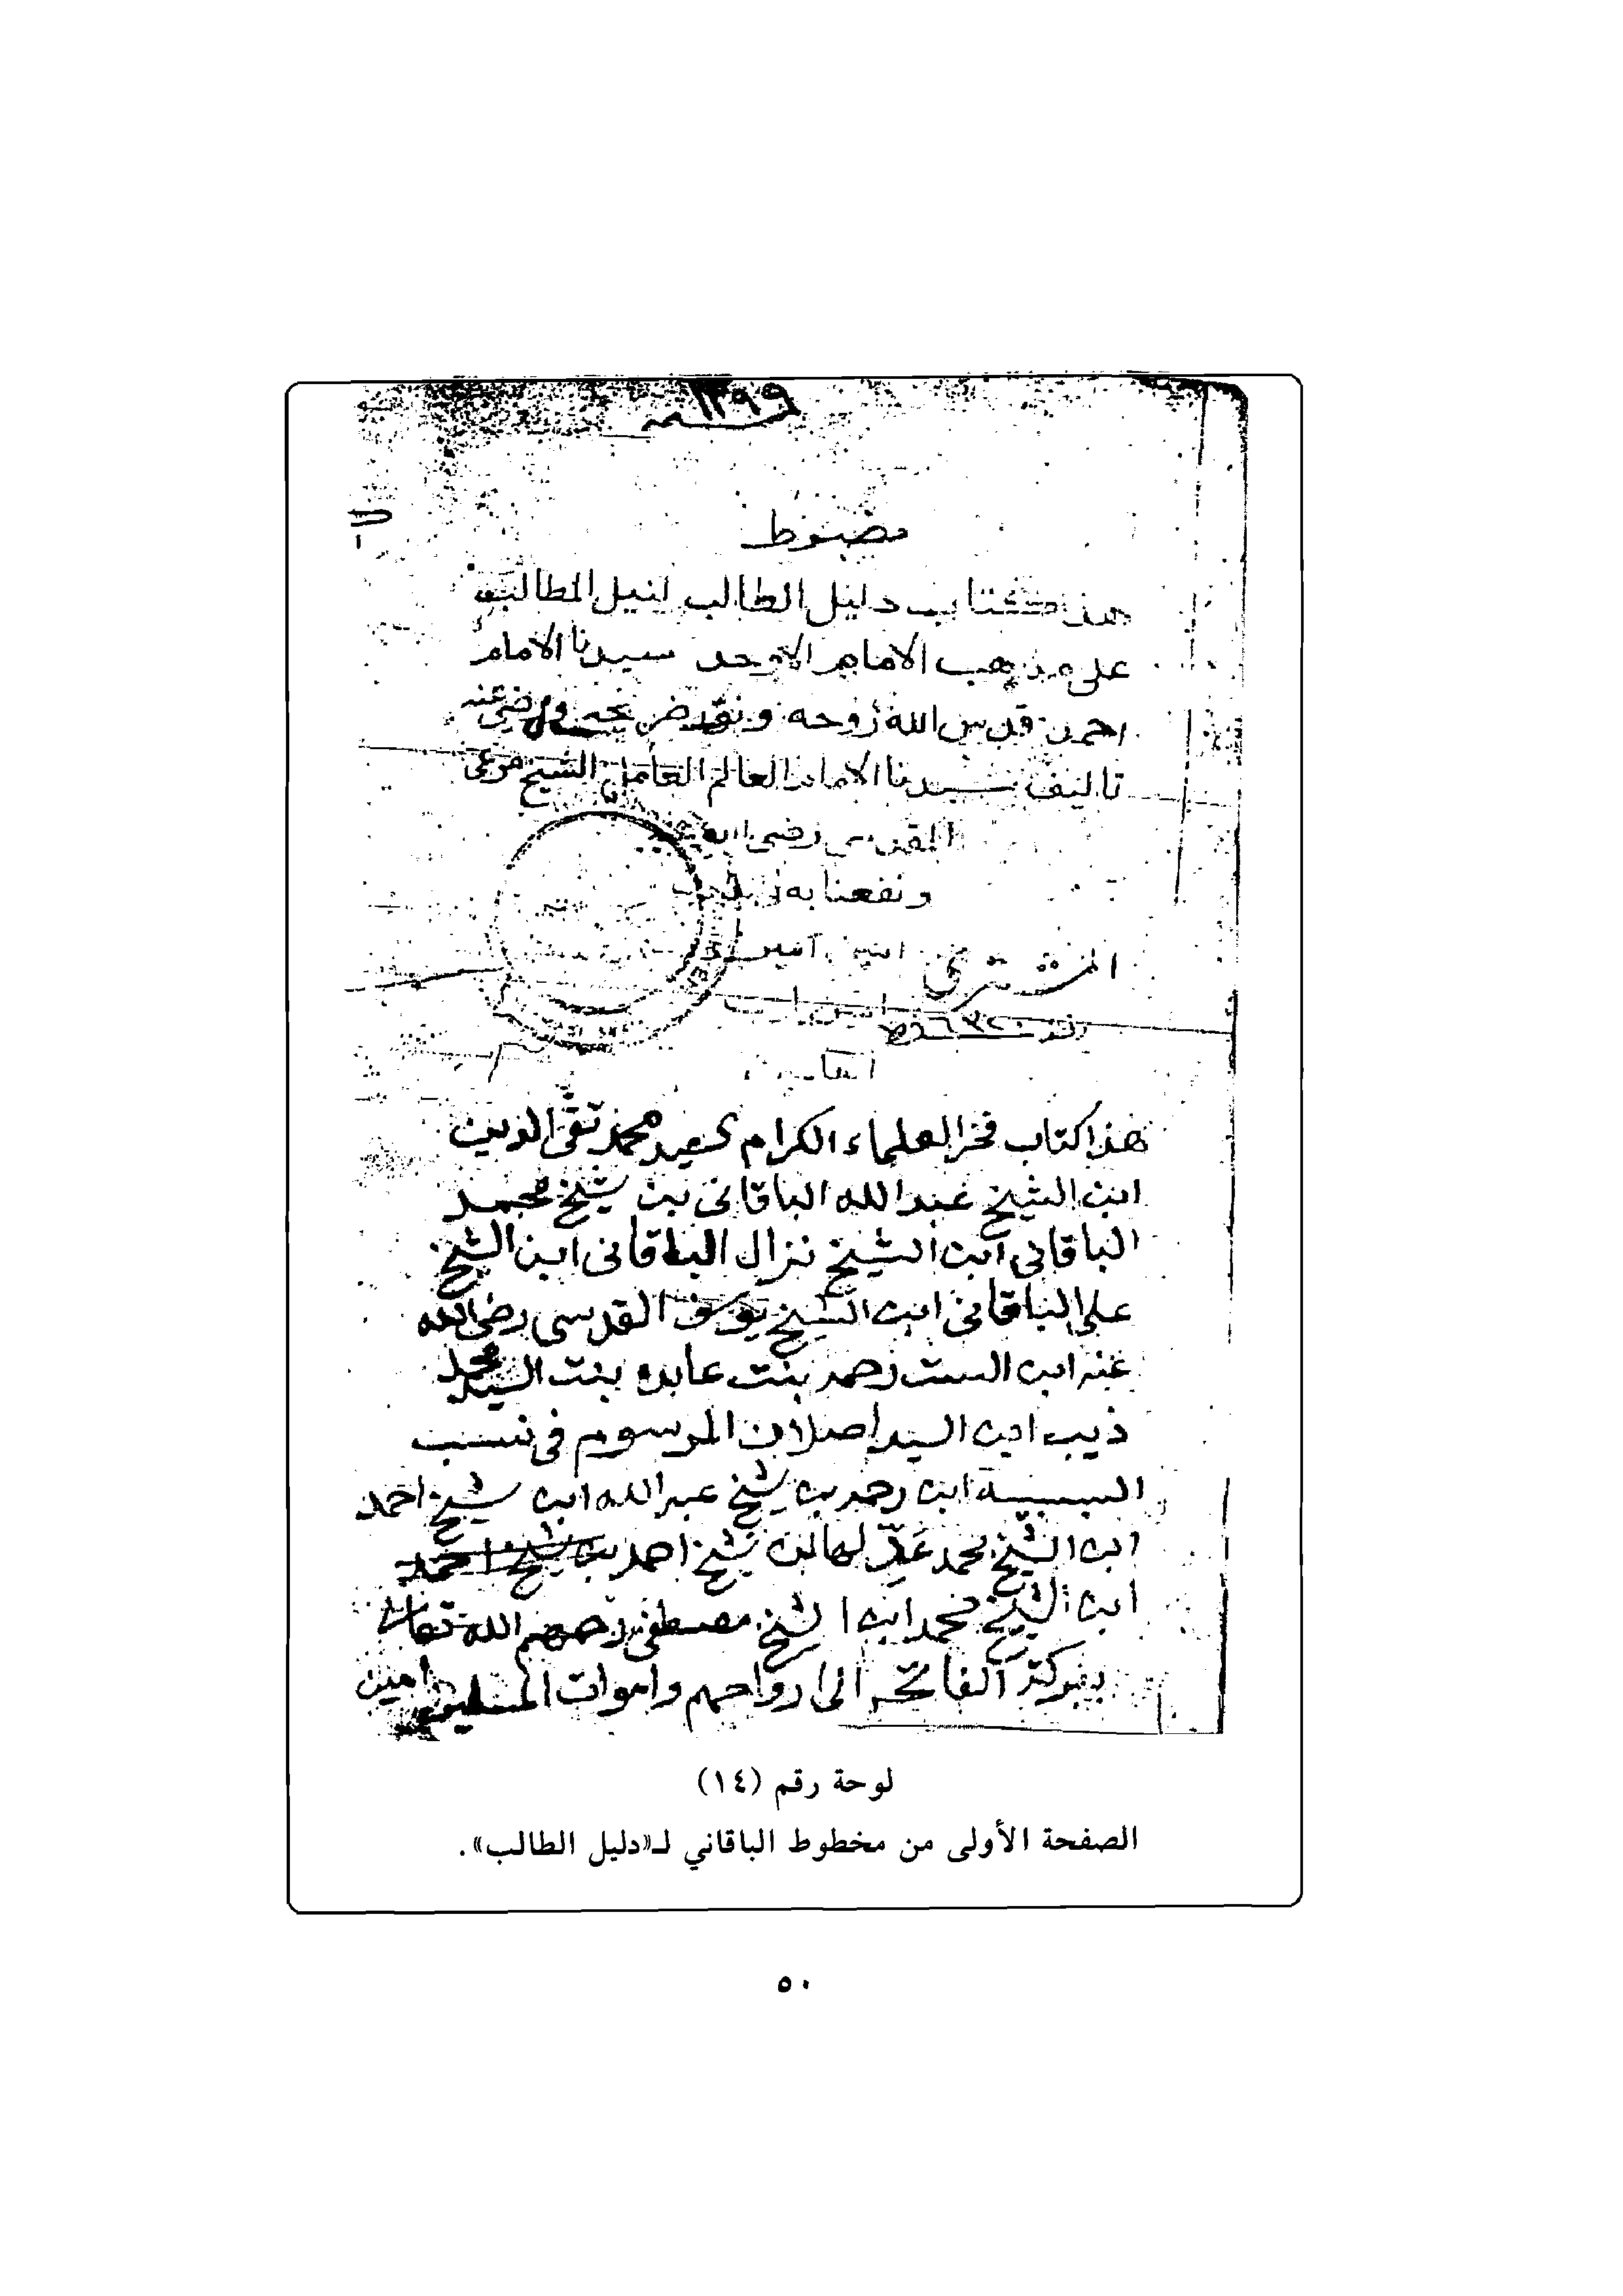 ١٢٩٩
مضبوط
هذا كتاب دليل الطالب لنيل المطالب
على مذهب الامام الاوحد سيدنا الامام
احمد قدس الله روحه ونور ضريحه ورضي عنه
تاليف سيدنا الامام العالم العامل الشيخ مرعي
المقدسي رضي الله
ونفعنا به
امين امين
المشتري
هذا كتاب فخر العلماء الكرام محمد تقي الدين
ابن الشيخ عبد الله الباقاني بن شيخ محمد
الباقاني ابن الشيخ نزال الباقاني ابن الشيخ
علي الباقاني ابن الشيخ يوسف القدسي رضي الله
عنه ابن الست رحمه بنت عابده بنت السيد محمد
ذيب ابن السيد اصلان المرسوم في نسب
ابن شيخ عبد الله ابن شيخ احمد
ابن الشيخ محمد شيخ احمد بن شيخ احمد
ابن الشيخ محمد ابن الشيخ مصطفى رحمهم الله تعالى
ببركة الفاتحه الى ارواحهم واموات المسلمين امين
لوحة رقم (١٤)
الصفحة الأولى من مخطوط الباقاني لـ«دليل الطالب».
٥٠